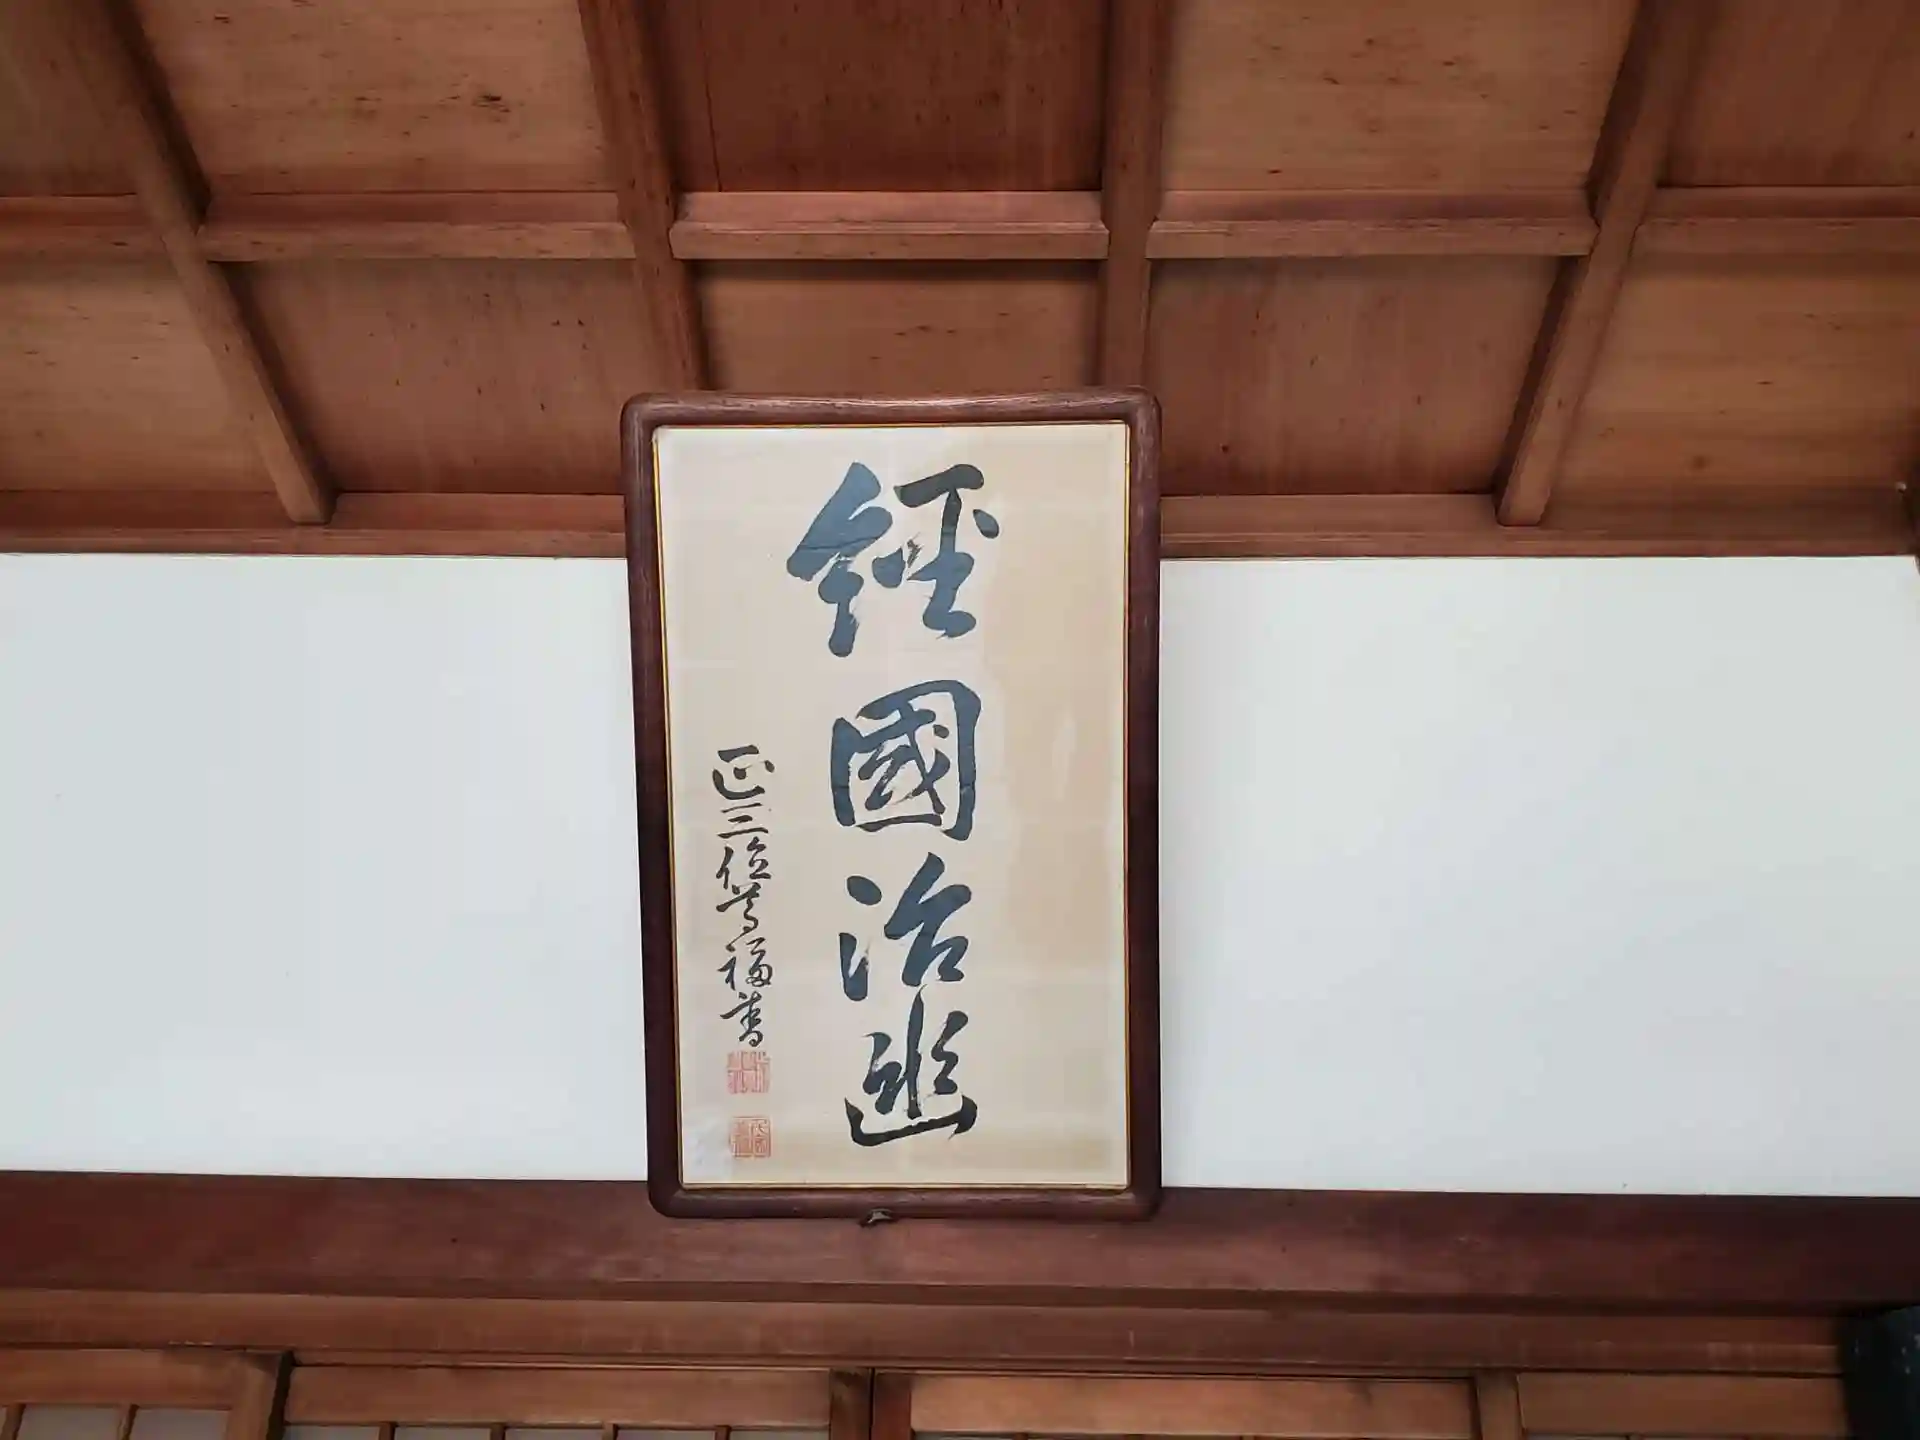 經國治幽
正三位尊福書